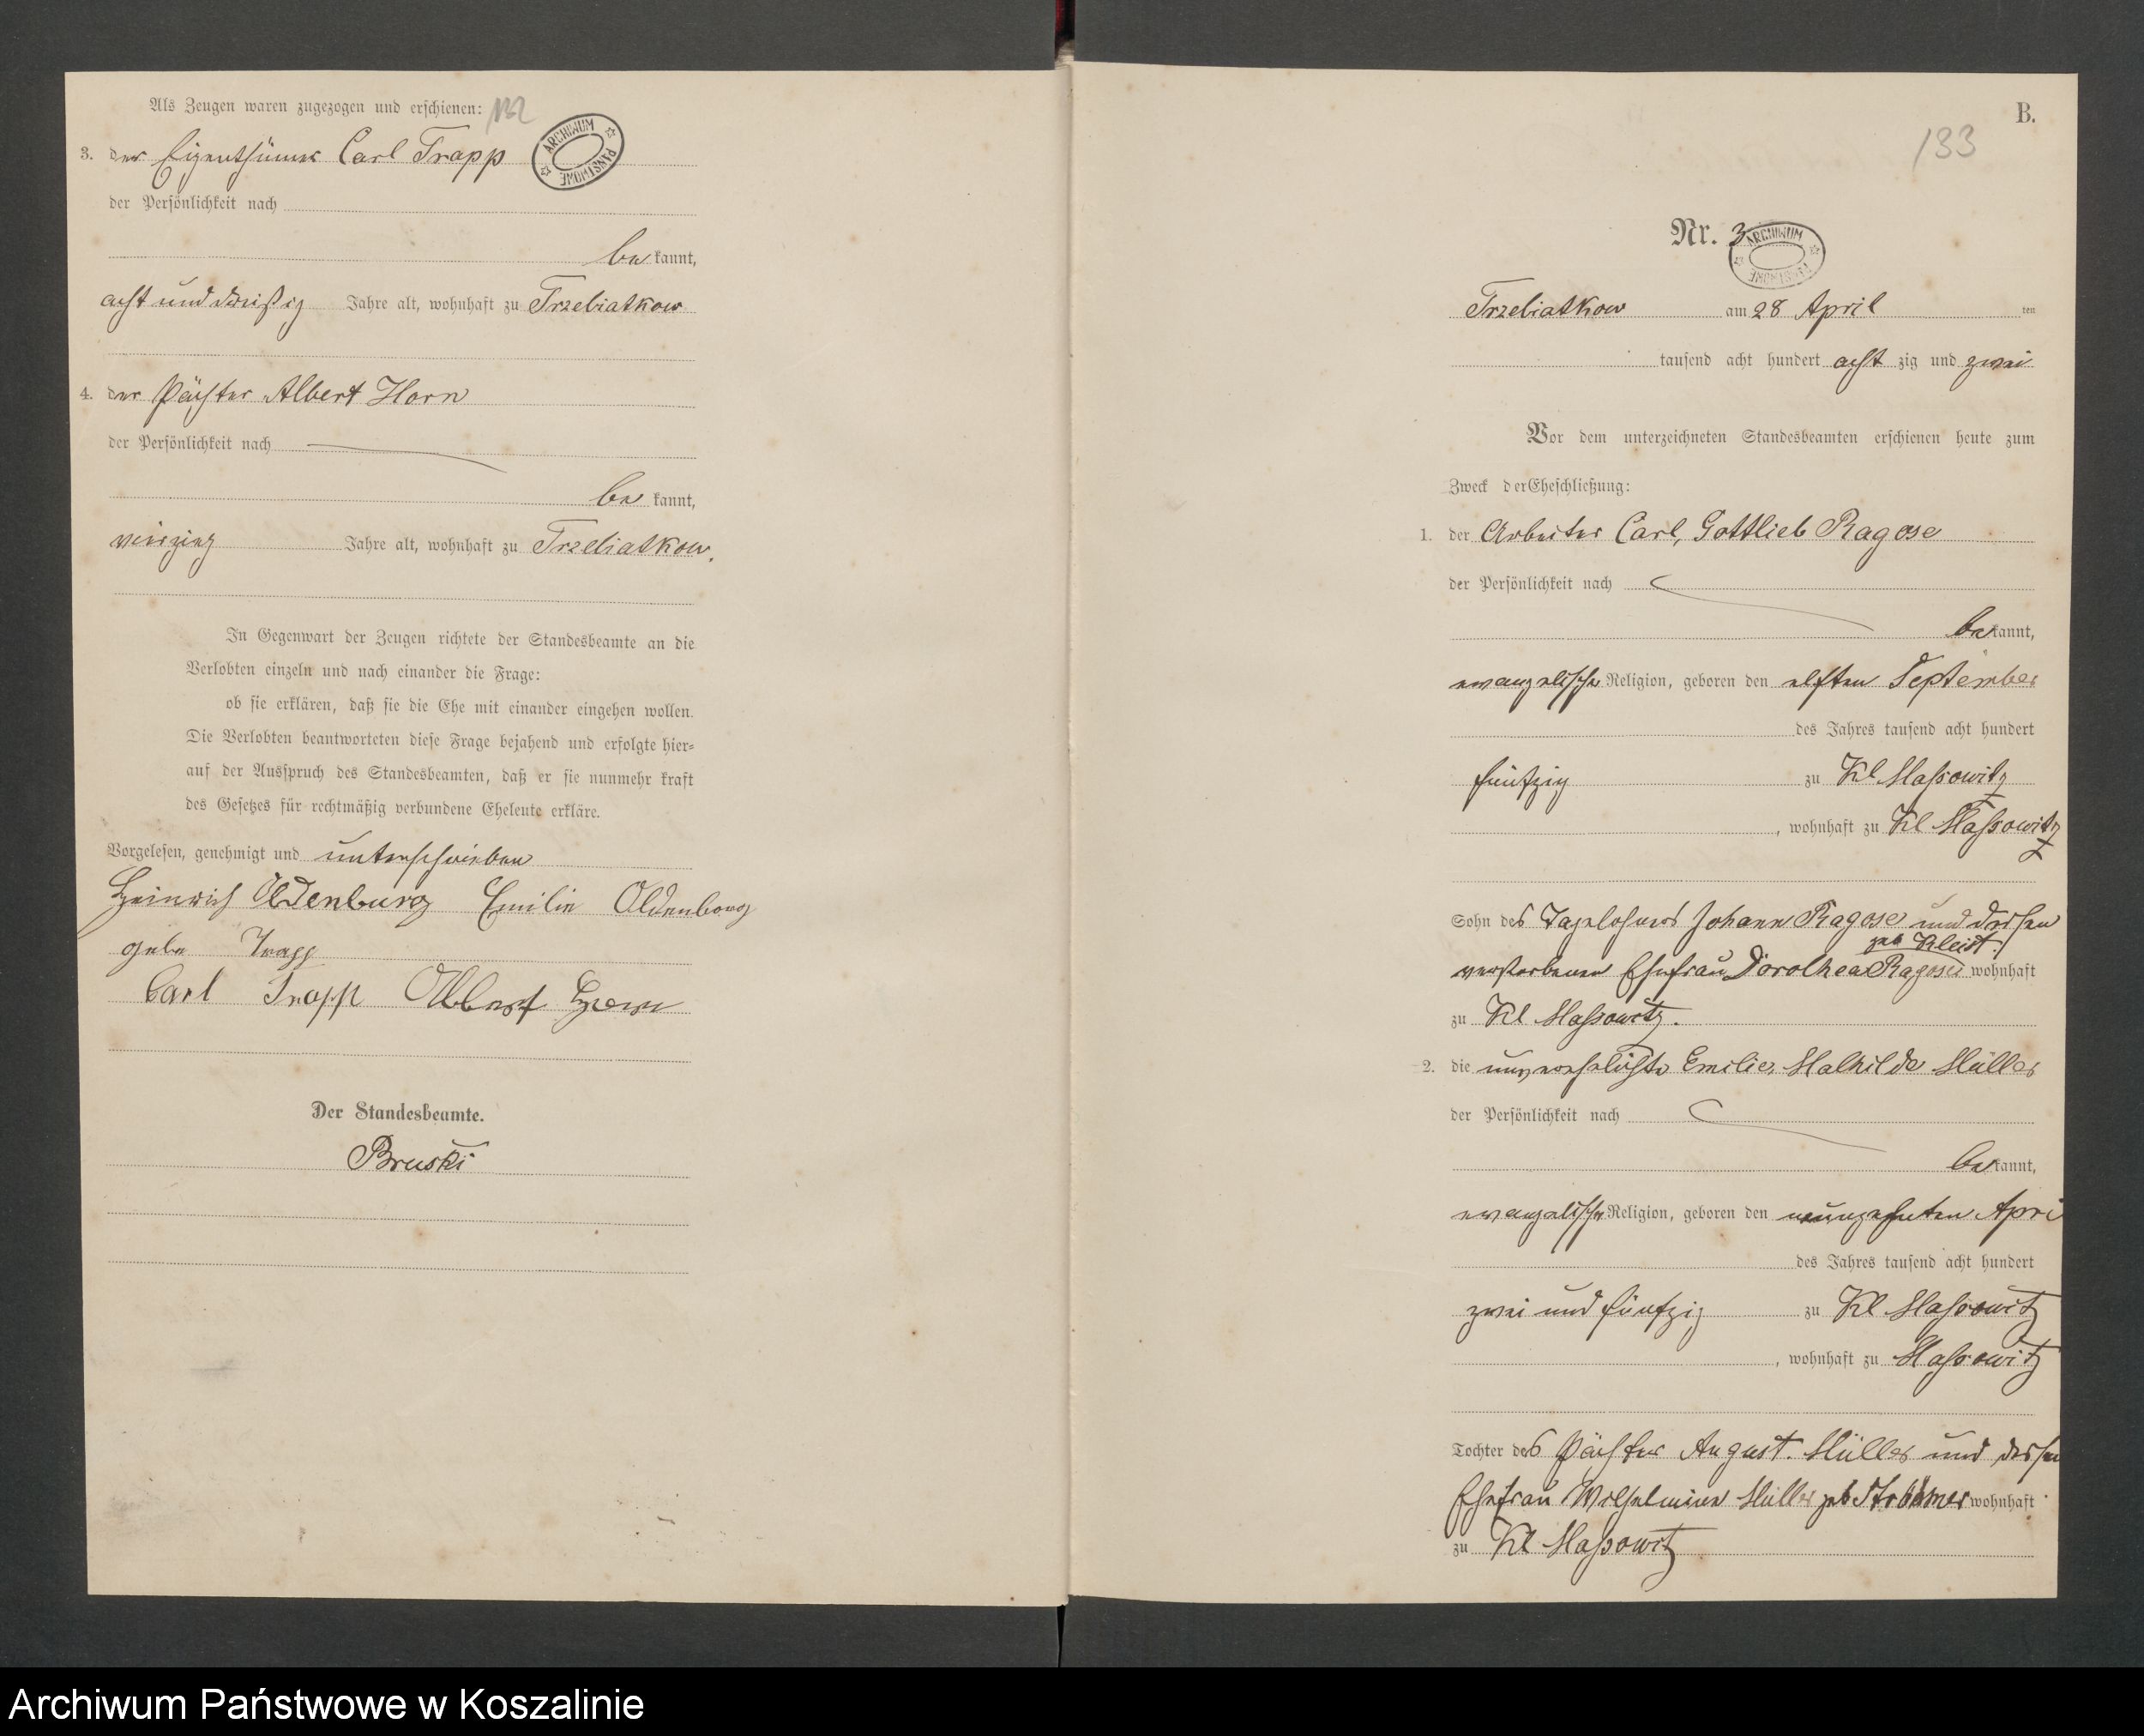 Als Zeugen waren zugezogen und erschienen: 132
ARCHIWUM PAŃSTWOWE
3. der Eigenthümer Carl Trapp
der Persönlichkeit nach
be kannt,
acht und dreißig Jahre alt, wohnhaft zu Trzebiatkow
4. der Pächter Albert Horn
der Persönlichkeit nach
be kannt,
vierzig Jahre alt, wohnhaft zu Trzebiatkow.
In Gegenwart der Zeugen richtete der Standesbeamte an die
Verlobten einzeln und nach einander die Frage:
ob sie erklären, daß sie die Ehe mit einander eingehen wollen.
Die Verlobten beantworteten diese Frage bejahend und erfolgte hier=
auf der Ausspruch des Standesbeamten, daß er sie nunmehr kraft
des Gesetzes für rechtmäßig verbundene Eheleute erkläre.
Vorgelesen, genehmigt und unterschrieben
Heinrich Oldenburg Emilie Oldenburg
gebe Trapp
Carl Trapp Albert Horn
Der Standesbeamte.
Bruski
B.
133
Nr. 3
ARCHIWUM PAŃSTWOWE
Trzebiatkow am 28 April ten
tausend acht hundert acht zig und zwei
Vor dem unterzeichneten Standesbeamten erschienen heute zum
Zweck der Eheschließung:
1. der Arbeiter Carl, Gottlieb Ragose
der Persönlichkeit nach
be kannt,
evangelischer Religion, geboren den elften September
des Jahres tausend acht hundert
fünfzig zu Kl Massowitz
, wohnhaft zu Kl Massowitz
Sohn des Tagelöhners Johann Ragose und dessen
geb Kleist
verstorbenen Ehefrau Dorothea Ragose wohnhaft
zu Kl Massowitz.
2. die unverehelichte Emilie, Mathilde Müller
der Persönlichkeit nach
be kannt,
evangelischer Religion, geboren den neunzehnten Apri
des Jahres tausend acht hundert
zwei und fünfzig zu Kl Massowitz
, wohnhaft zu Massowitz
Tochter des Pächter August Müller und dessen
Ehefrau Wilhelmine Müller geb Ströhmer wohnhaft
zu Kl Massowitz
Archiwum Państwowe w Koszalinie